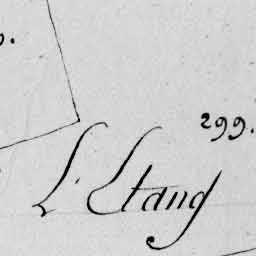 299.
L'Etang